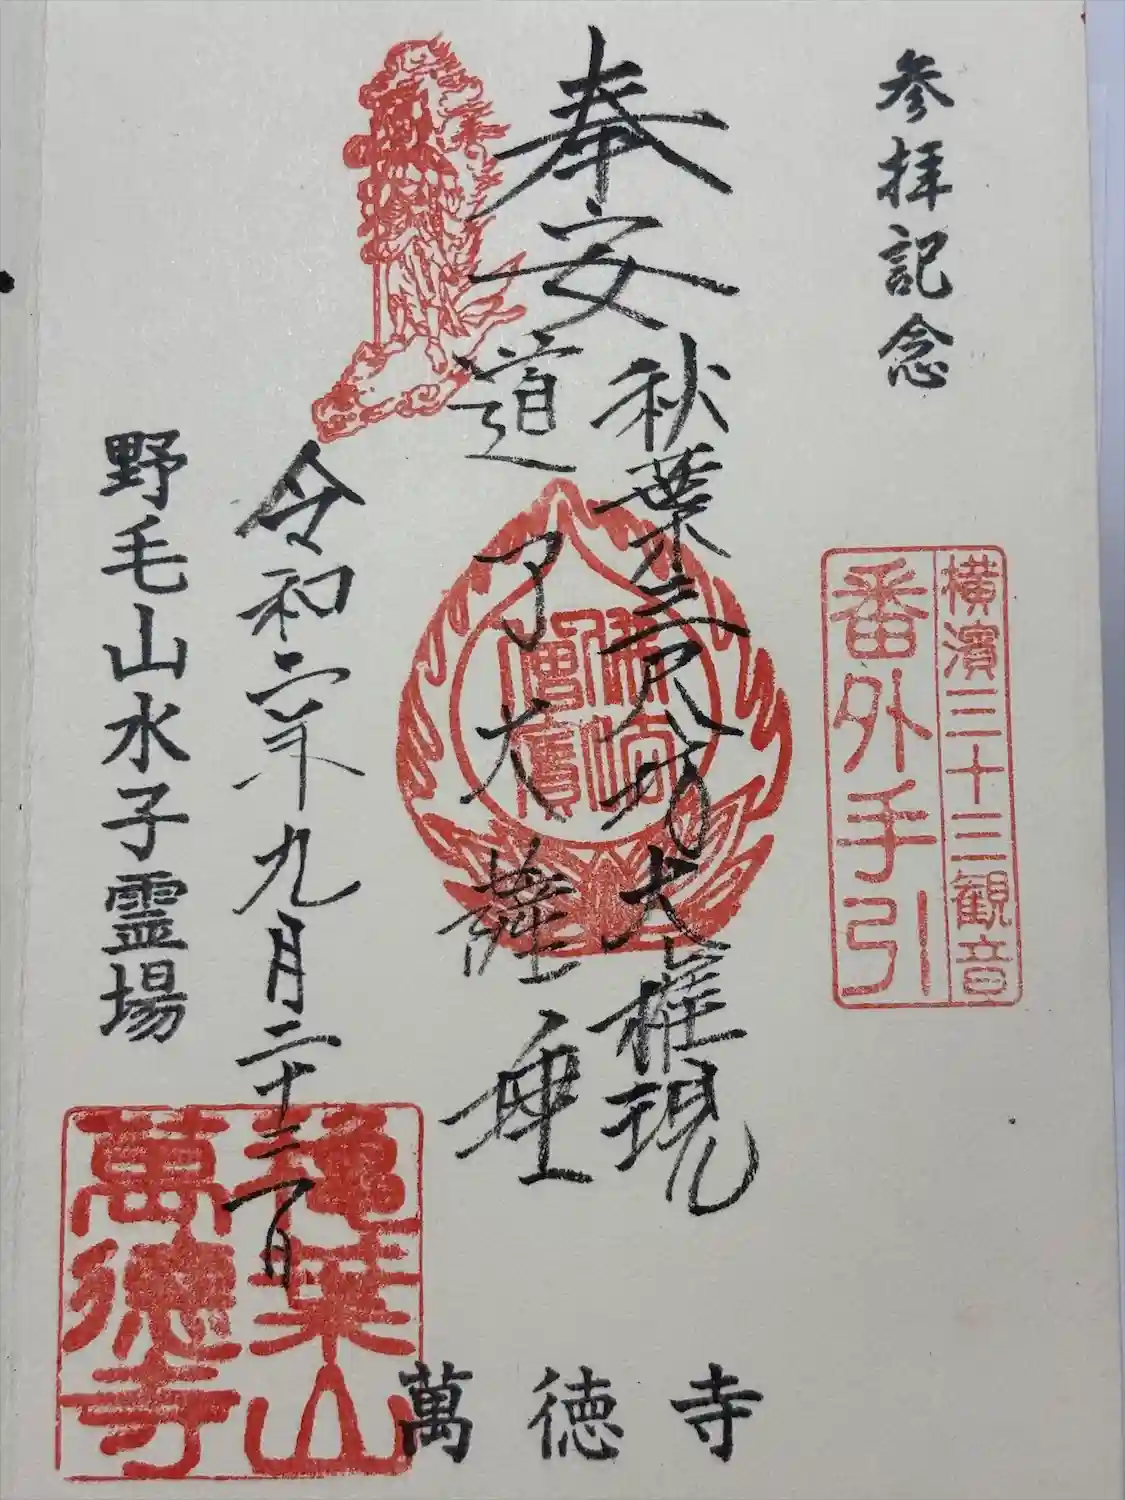 参拝記念
横濱三十三観音
番外手引
奉安
秋葉三尺坊大権現
道了大薩埵
令和二年九月二十三日
野毛山水子霊場
萬徳寺
萬徳寺